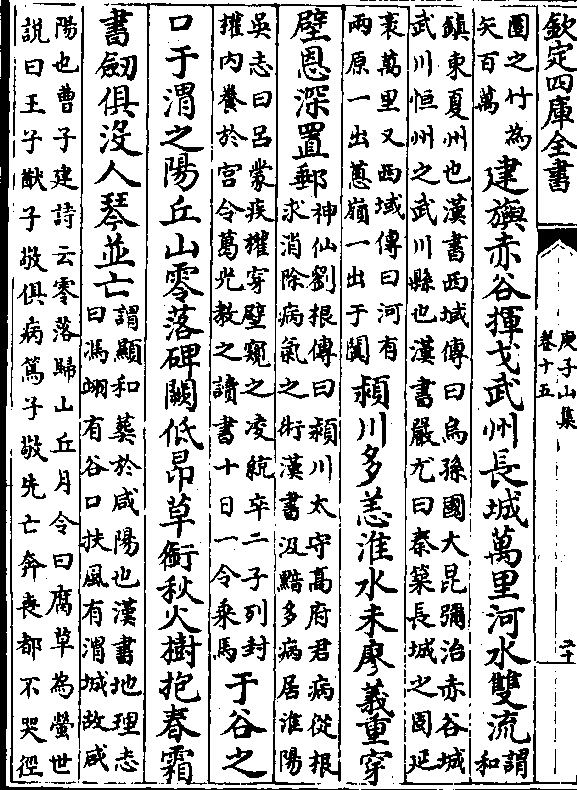 欽定四庫全書
庚子山集
卷十五
二十
園之竹為
矢百萬
建旟赤谷揮戈武州長城萬里河水雙流
謂
和
鎮東夏州也漢書西域傳曰烏孫國大昆彌治赤谷城
武川恒州之武川縣也漢書嚴尤曰秦築長城之固延
袤萬里又西域傳曰河有
兩原一出蔥嶺一出于闐
潁川多恙淮水未廖義重穿
壁恩深置郵
神仙劉根傳曰潁川太守高府君病從根
求消除病氣之術漢書汲黯多病居淮陽
吳志曰呂蒙疾權穿壁窺之凌統卒二子列封
權内養於宮令葛光教之讀書十日一令乘馬
于谷之
口于渭之陽丘山零落碑闕低昂草銜秋火樹抱春霜
書劒俱沒人琴並亡
謂顯和葬於咸陽也漢書地理志
曰馮翊有谷口扶風有渭城故咸
陽也曹子建詩云零落歸山丘月令曰腐草為螢世
説曰王子猷子敬俱病篤子敬先亡奔喪都不哭徑